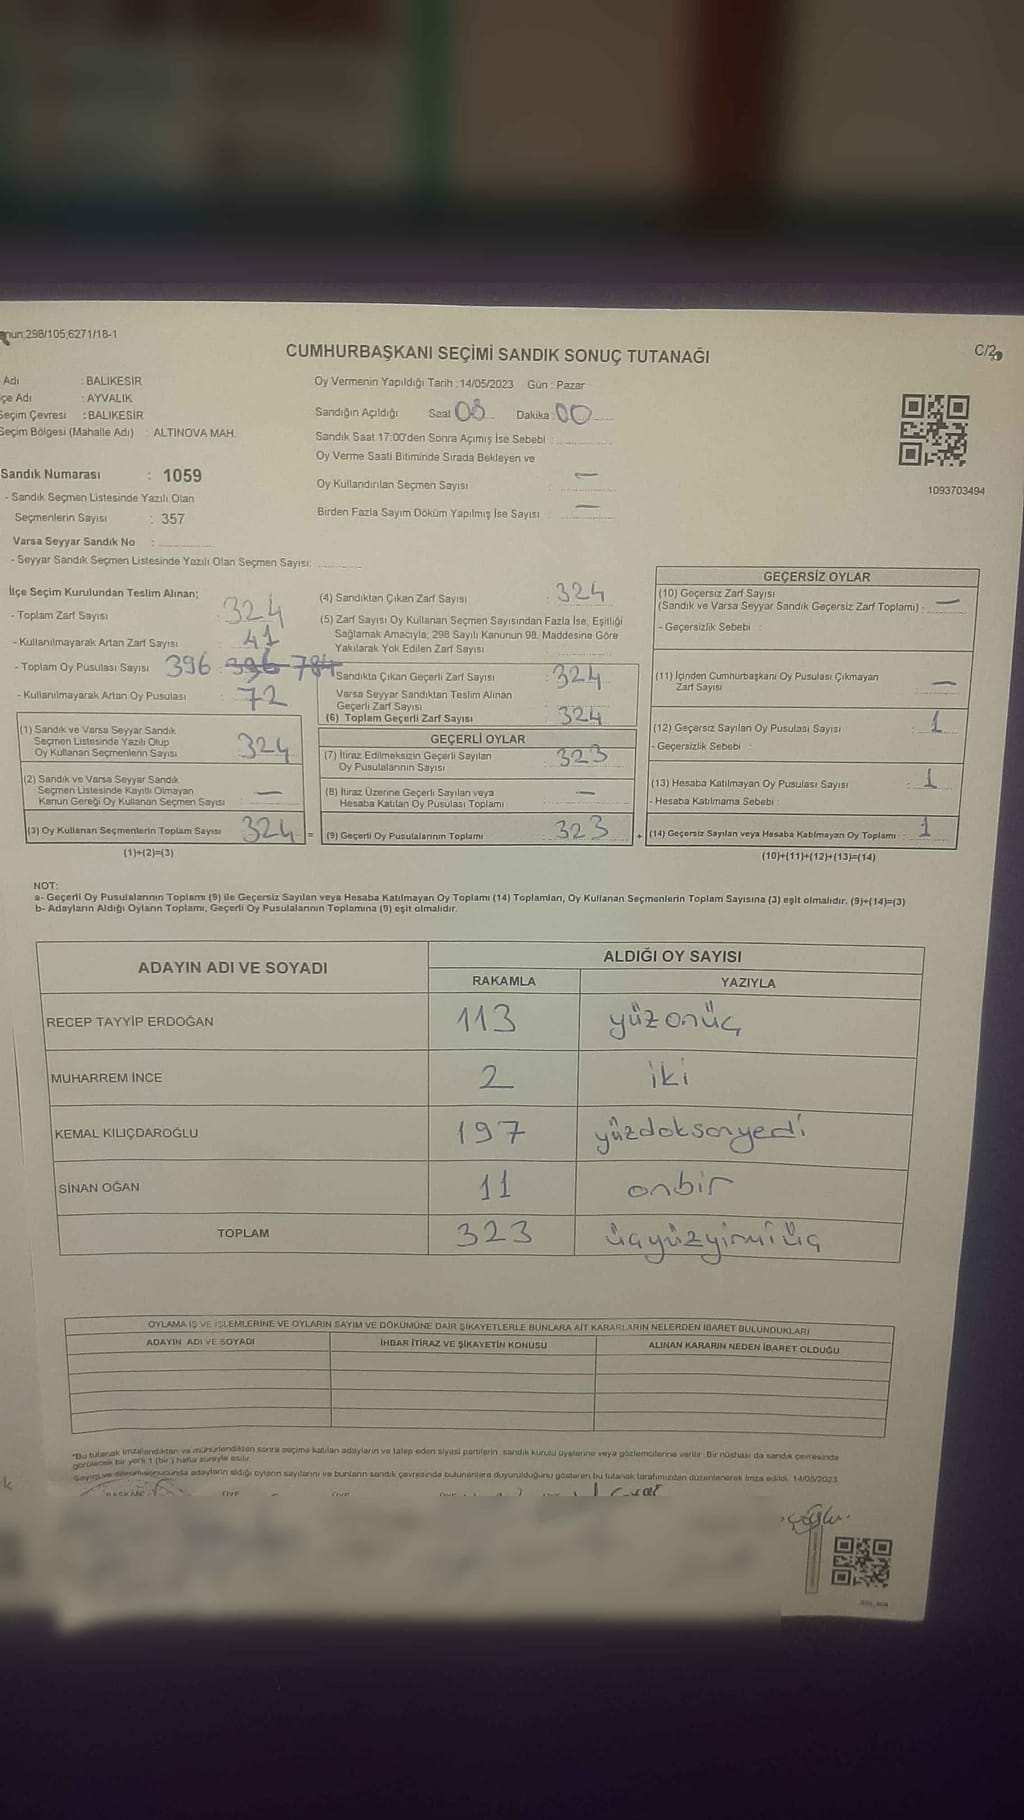 298/105;6271/18-1
CUMHURBAŞKANI SEÇİMİ SANDIK SONUÇ TUTANAĞI
C/2
Adı : BALIKESİR
çe Adı : AYVALIK
Seçim Çevresi : BALIKESİR
Seçim Bölgesi (Mahalle Adı) : ALTINOVA MAH.
Oy Vermenin Yapıldığı Tarih :14/05/2023 Gün : Pazar
Sandığın Açıldığı Saat 08 Dakika : 00
Sandık Saat 17:00'den Sonra Açımış İse Sebebi :
Oy Verme Saati Bitiminde Sırada Bekleyen ve
Oy Kullandırılan Seçmen Sayısı : —
Birden Fazla Sayım Döküm Yapılmış İse Sayısı : —
1093703494
Sandık Numarası : 1059
- Sandık Seçmen Listesinde Yazılı Olan
Seçmenlerin Sayısı : 357
Varsa Seyyar Sandık No :
- Seyyar Sandık Seçmen Listesinde Yazılı Olan Seçmen Sayısı:
İlçe Seçim Kurulundan Teslim Alınan;
- Toplam Zarf Sayısı : 324
- Kullanılmayarak Artan Zarf Sayısı : 41
- Toplam Oy Pusulası Sayısı 396 : 396 784
- Kullanılmayarak Artan Oy Pusulası : 72
(1) Sandık ve Varsa Seyyar Sandık
Seçmen Listesinde Yazılı Olup
Oy Kullanan Seçmenlerin Sayısı : 324
(2) Sandık ve Varsa Seyyar Sandık
Seçmen Listesinde Kayıtlı Olmayan
Kanun Gereği Oy Kullanan Seçmen Sayısı : —
(3) Oy Kullanan Seçmenlerin Toplam Sayısı : 324 =
(1)+(2)=(3)
(4) Sandıktan Çıkan Zarf Sayısı : 324
(5) Zarf Sayısı Oy Kullanan Seçmen Sayısından Fazla İse, Eşitliği
Sağlamak Amacıyla; 298 Sayılı Kanunun 98. Maddesine Göre
Yakılarak Yok Edilen Zarf Sayısı :
Sandıkta Çıkan Geçerli Zarf Sayısı : 324
Varsa Seyyar Sandıktan Teslim Alınan
Geçerli Zarf Sayısı :
(6) Toplam Geçerli Zarf Sayısı : 324
GEÇERLİ OYLAR
(7) İtiraz Edilmeksizin Geçerli Sayılan
Oy Pusulalarının Sayısı : 323
(8) İtiraz Üzerine Geçerli Sayılan veya
Hesaba Katılan Oy Pusulası Toplamı : —
(9) Geçerli Oy Pusulalarının Toplamı : 323 +
GEÇERSİZ OYLAR
(10) Geçersiz Zarf Sayısı
(Sandık ve Varsa Seyyar Sandık Geçersiz Zarf Toplamı) : —
- Geçersizlik Sebebi :
(11) İçinden Cumhurbaşkanı Oy Pusulası Çıkmayan
Zarf Sayısı : —
(12) Geçersiz Sayılan Oy Pusulası Sayısı : 1
- Geçersizlik Sebebi :
(13) Hesaba Katılmayan Oy Pusulası Sayısı : 1
- Hesaba Katılmama Sebebi :
(14) Geçersiz Sayılan veya Hesaba Katılmayan Oy Toplamı : 1
(10)+(11)+(12)+(13)=(14)
NOT:
a- Geçerli Oy Pusulalarının Toplamı (9) ile Geçersiz Sayılan veya Hesaba Katılmayan Oy Toplamı (14) Toplamları, Oy Kullanan Seçmenlerin Toplam Sayısına (3) eşit olmalıdır. (9)+(14)=(3)
b- Adayların Aldığı Oyların Toplamı, Geçerli Oy Pusulalarının Toplamına (9) eşit olmalıdır.
ADAYIN ADI VE SOYADI
ALDIĞI OY SAYISI
RAKAMLA YAZIYLA
RECEP TAYYİP ERDOĞAN 113 yüzonüç
MUHARREM İNCE 2 iki
KEMAL KILIÇDAROĞLU 197 yüzdoksanyedi
SİNAN OĞAN 11 onbir
TOPLAM 323 üçyüzyirmiüç
OYLAMA İŞ VE İŞLEMLERİNE VE OYLARIN SAYIM VE DÖKÜMÜNE DAİR ŞİKAYETLERLE BUNLARA AİT KARARLARIN NELERDEN İBARET BULUNDUKLARI
ADAYIN ADI VE SOYADI İHBAR İTİRAZ VE ŞİKAYETİN KONUSU ALINAN KARARIN NEDEN İBARET OLDUĞU
*Bu tutanak imzalandıktan ve mühürlendikten sonra seçime katılan adayların ve talep eden siyasi partilerin sandık kurulu üyelerine veya gözlemcilerine verilir. Bir nüshası da sandık çevresinde
görülecek bir yere 1 (bir) hafta süreyle asılır.
Sayım ve döküm sonucunda adayların aldığı oyların sayılarını ve bunların sandık çevresinde bulunanlara duyurulduğunu gösteren bu tutanak tarafımızdan düzenlenerek imza edildi. 14/05/2023
BAŞKAN ÜYE